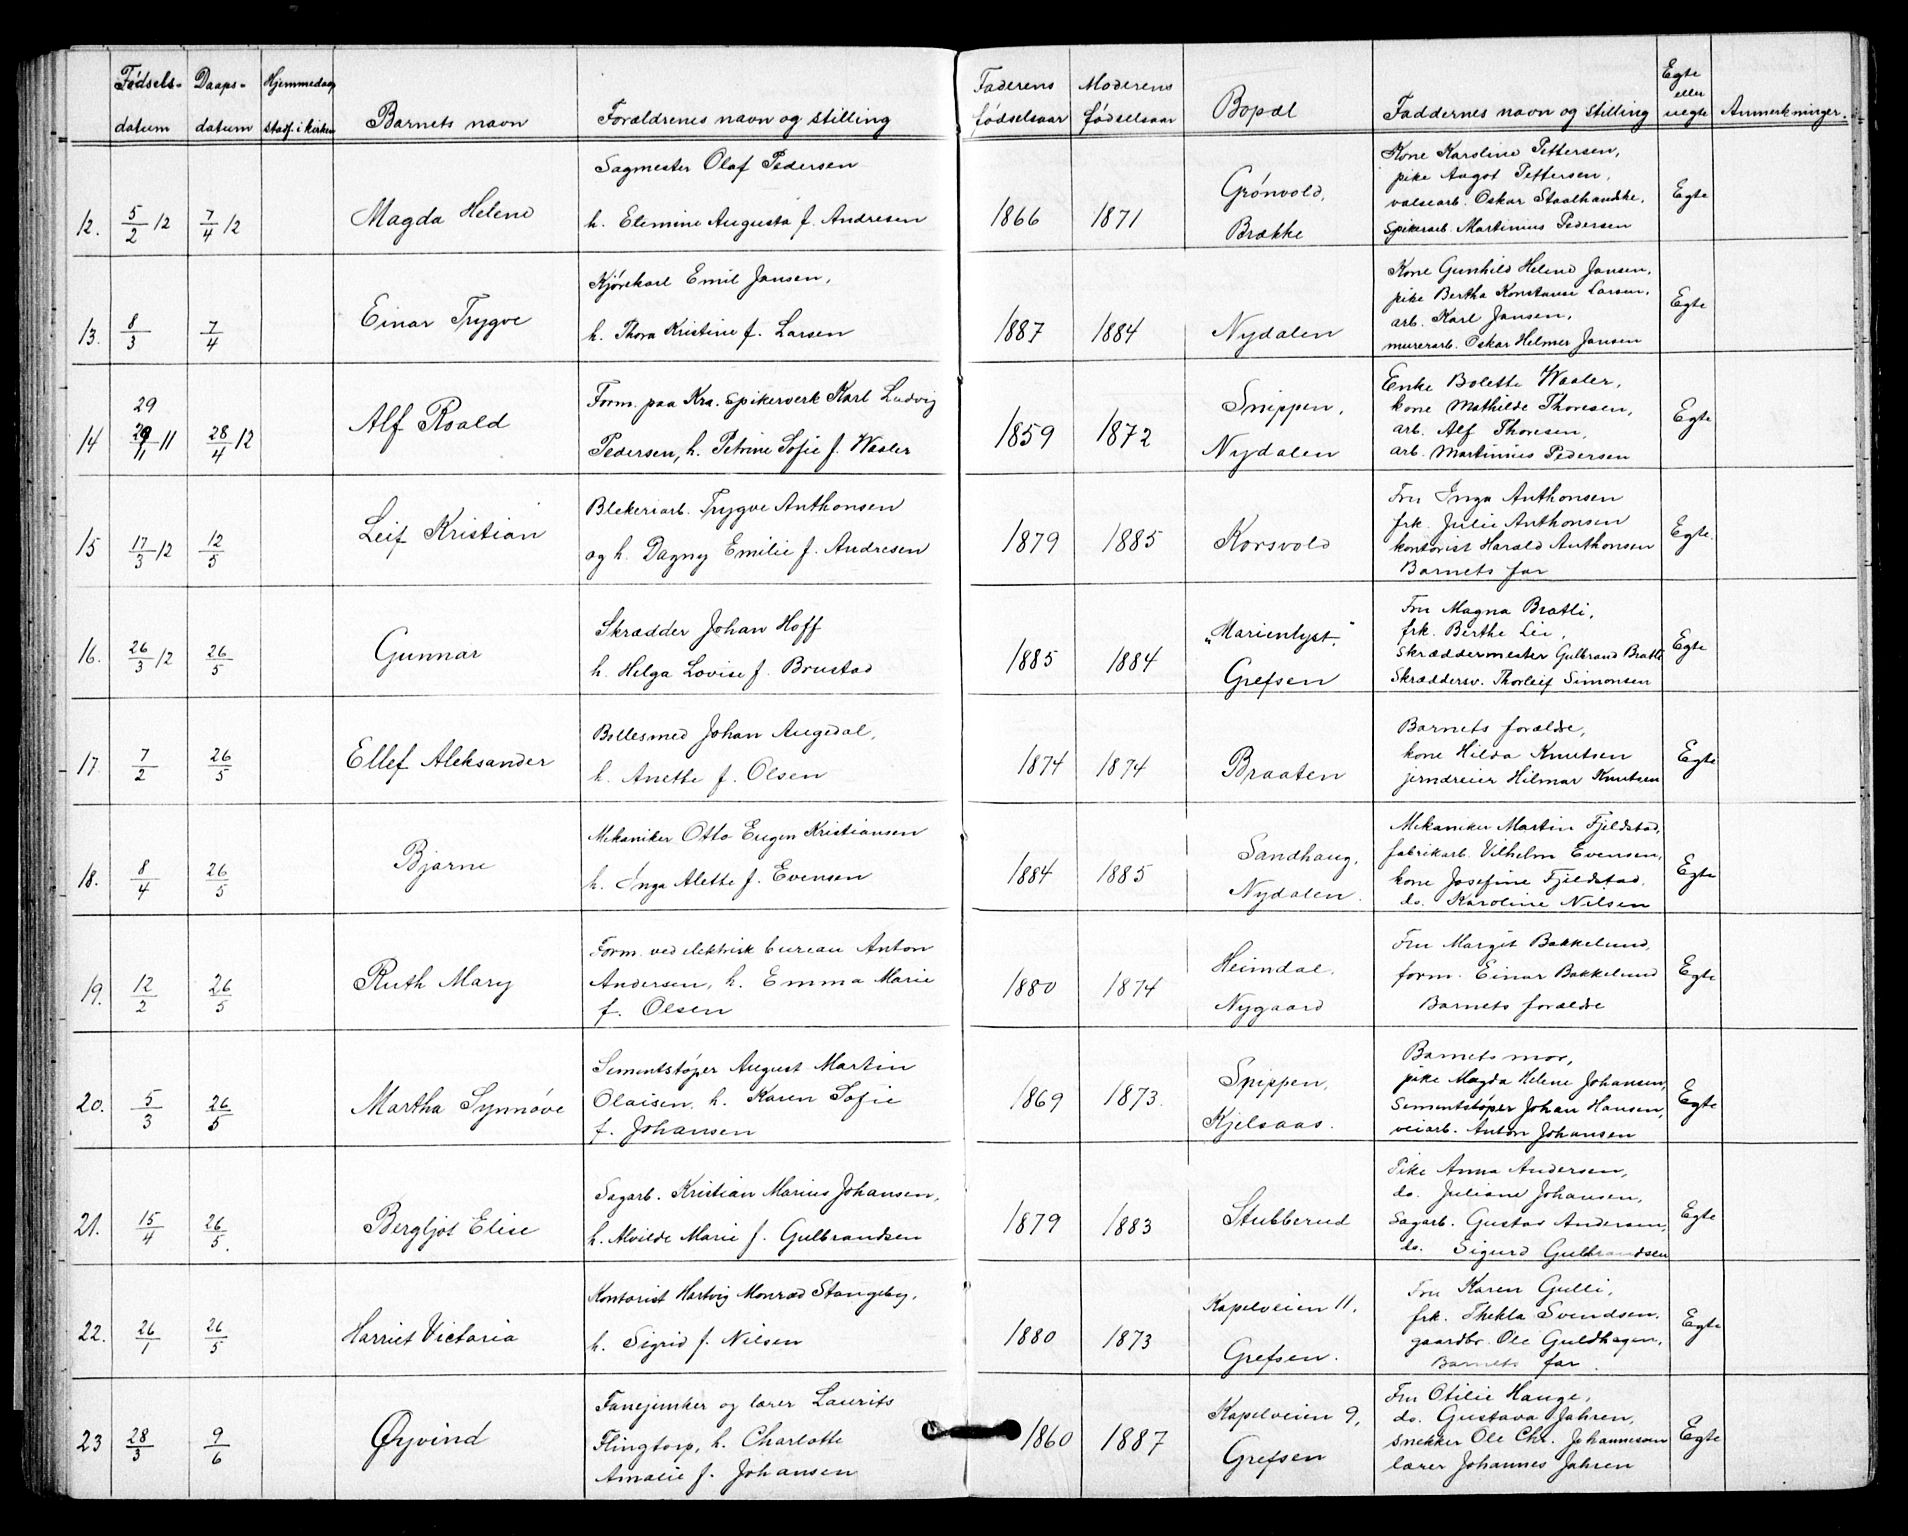 Fødsels- datum | Daaps- datum | Hjemmedaap stadf. i kirken | Barnets navn | Forældrenes navn og stilling | Faderens fødselsaar | Moderens fødselsaar | Bopæl | Faddernes navn og stilling | Egte eller uegte | Anmerkninger.
12. 5/2 12 | 7/4 12 | Magda Helene
Sagmester Olaf Pedersen
h. Elemine Augusta f. Andresen
1866 | 1871
Grønvold,
Brække
Kone Karoline Pettersen,
pike Aagot Pettersen,
valsearb. Oskar Staalhandske,
spikerarb. Martinius Pedersen
Egte
13. 8/3 | 7/4 | Einar Trygve
Kjørekarl Emil Jansen,
h. Thora Kristine f. Larsen
1887 | 1884
Nydalen
Kone Gunhild Helene Jansen,
pike Bertha Konstanse Larsen,
arb. Karl Jansen,
murerarb. Oskar Helmer Jansen
Egte
29
14 29/1 11 | 28/4 12 | Alf Roald
Form. paa Kra. spikerverk Karl Ludvig
Pedersen, h. Petrine Sofie f. Waaler
1859 | 1872
Snippen,
Nydalen
Enke Bolette Waaler,
kone Mathilde Thoresen,
arb. Alf Thoresen,
arb. Martinius Pedersen
Egte
15 17/3 12 | 12/5 | Leif Kristian
Blekeriarb. Trygve Anthonsen
og h. Dagny Emilie f. Andresen
1879 | 1885
Korsvold
Fru Inga Anthonsen
frk. Julie Anthonsen
kontorist Harald Anthonsen
Barnets far
Egte.
16. 26/3 12 | 26/5 | Gunnar
Skrædder Johan Hoff
h. Helga Lovise f. Brustad
1885 | 1884
"Marienlyst",
Grefsen
Fru Magna Bratli,
frk. Berthe Lie,
Skræddermester Gulbrand Bratli
Skræddersv. Thorleif Simonsen
Egte
17. 7/2 | 26/5 | Ellef Aleksander
Boltesmed Johan Augedal,
h. Anette f. Olsen
1874 | 1874
Braaten
Barnets forældre,
kone Hilda Knutsen
jerndreier Hilmar Knutsen
Egte
18. 8/4 | 26/5 | Bjarne
Mekaniker Otto Eugen Kristiansen
h. Inga Alette f. Evensen
1884 | 1885
Sandhaug,
Nydalen.
Mekaniker Martin Fjeldstad,
fabrikarb. Vilhelm Evensen,
kone Josefine Fjeldstad.
do. Karoline Nilsen
Egte
19. 12/2 | 26/5 | Ruth Mary
Form. ved elektrisk bureau Anton
Andersen, h. Emma Marie
f. Olsen
1880 | 1874
Heimdal,
Nygaard
Fru Margit Bakkelund,
form. Einar Bakkelund
Barnets forældre
Egte
20. 5/3 | 26/5 | Martha Synnøve
Sementstøper August Martin
Olaisen, h. Karen Sofie
f. Johansen
1869 | 1873.
Spippen,
Kjelsaas.
Barnets mor,
pike Magda Helene Johansen,
Sementstøper Johan Hansen,
veiarb. Anton Johansen
Egte
21. 15/4 | 26/5. | Bergljot Elise
Sagarb. Kristian Marius Johansen,
h. Alvilde Marie f. Gulbrandsen
1879 | 1883
Stubberud
Pike Anna Andersen,
do. Juliane Johansen,
Sagarb. Gustav Andersen,
do. Sigurd Gulbrandsen
Egte
22. 26/1 | 26/5 | Harriet Victoria
Kontorist Hartvig Monrad Stangeby,
h. Sigrid f. Nilsen
1880 | 1873
Kapelveien 11,
Grefsen.
Fru Karen Gulli,
frk. Thekla Svendsen,
gaardbr. Ole Guldhagen,
Barnets far.
Egte
23 28/3 | 9/6 | Øyvind
Fanejunker og lærer Laurits
Flingtorp, h. Charlotte
Amalie f. Johansen
1860 | 1887
Kapelveien 9,
Grefsen
Fru Otilie Hauge,
do. Gustava Jahren,
snekker Ole Chr. Johannessen
lærer Johannes Jahren
Egte